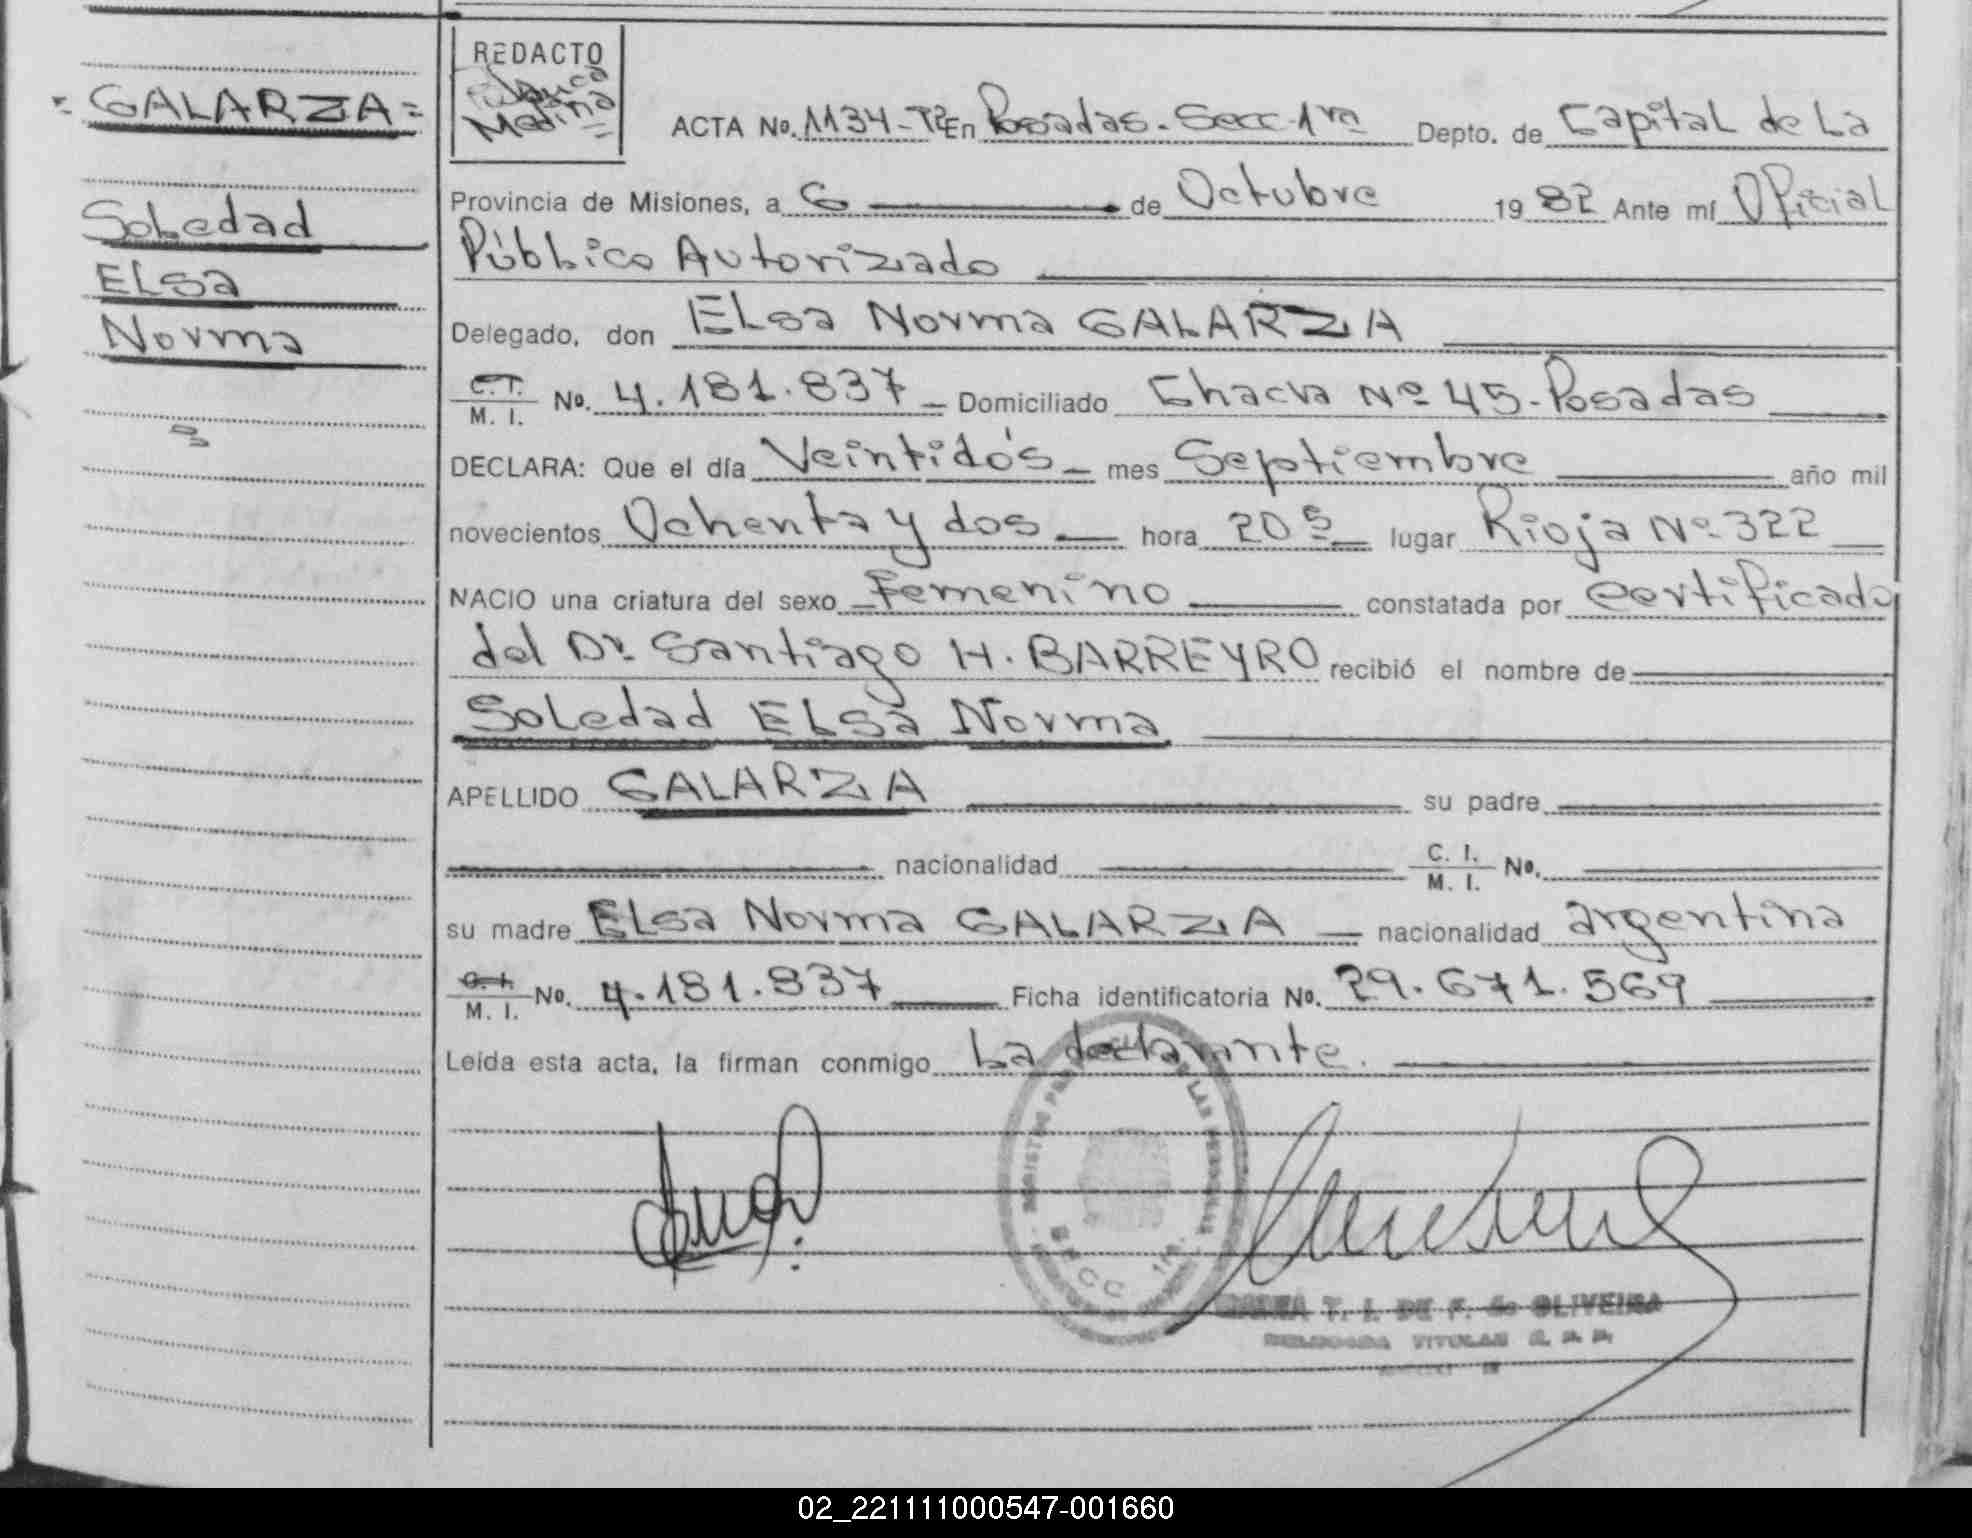 = GALARZA =
Soledad
Elsa
Norma
REDACTO
Medina
ACTA No. 1134-Tº2 En Posadas. Secc. 1ra Depto. de Capital de La
Provincia de Misiones, a 6 de Octubre 1982 Ante mí Oficial
Público Autorizado
Delegado, don Elsa Norma GALARZA
C.I. M. I. No. 4.181.837 Domiciliado Chacra Nº 45-Posadas
DECLARA: Que el día Veintidós mes Septiembre año mil
novecientos Ochenta y dos hora 20 5 lugar Rioja Nº 322
NACIO una criatura del sexo Femenino constatada por certificado
del Dr. Santiago H. BARREYRO recibió el nombre de
Soledad Elsa Norma
APELLIDO GALARZA su padre
nacionalidad C. I. M. I. No.
su madre Elsa Norma GALARZA nacionalidad argentina
C. I. M. I. No. 4.181.837 Ficha identificatoria No. 29.671.569
Leída esta acta, la firman conmigo La declarante.
SECC. 1ra.
T. I. DE F. de OLIVEIRA
TITULAR
02_221111000547-001660